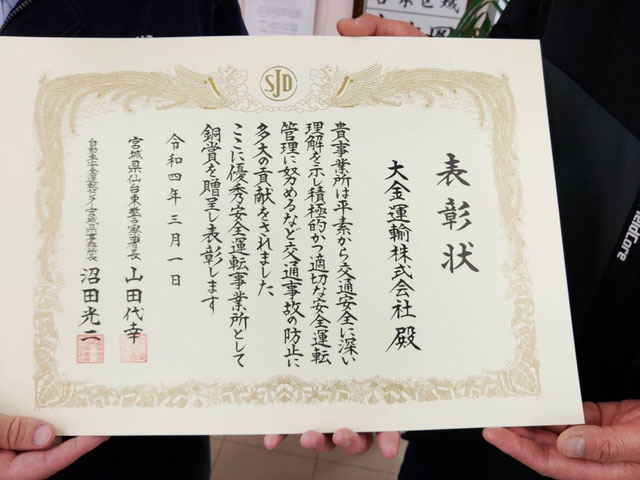 SJD
表彰状
大金運輸株式会社 殿
貴事業所は平素から交通安全に深い
理解を示し積極的かつ適切な安全運転
管理に努めるなど交通事故の防止に
多大の貢献をされました
ここに優秀安全運転事業所として
銅賞を贈呈し表彰します
令和四年三月一日
宮城県仙台東警察署長 山田代幸
自動車安全運転センター宮城県事務所長 沼田光二